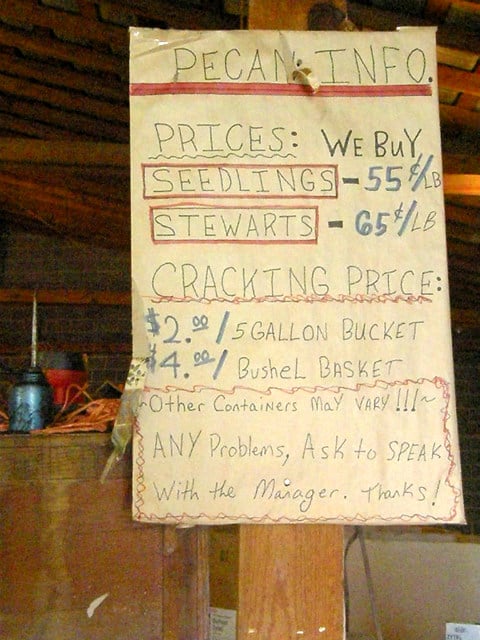 PECAN INFO.
PRICES: WE BUY
SEEDLINGS - 55¢/LB
STEWARTS - 65¢/LB
CRACKING PRICE:
$2.00/5 GALLON BUCKET
$4.00/ BUSHEL BASKET
~Other Containers MAY VARY!!!~
ANY Problems, Ask to SPEAK
With the Manager. Thanks!